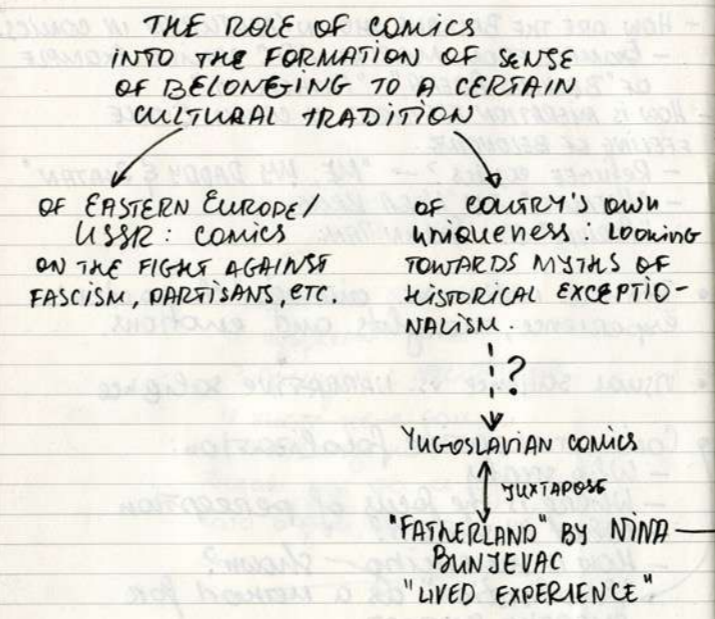 THE ROLE OF COMICS
INTO THE FORMATION OF SENSE
OF BELONGING TO A CERTAIN
CULTURAL TRADITION
OF EASTERN EUROPE/
USSR: COMICS
ON THE FIGHT AGAINST
FASCISM, PARTISANS, ETC.
OF COUTRY'S OWN
UNIQUENESS: LOOKING
TOWARDS MYTHS OF
HISTORICAL EXCEPTIO-
NALISM.
?
YUGOSLAVIAN COMICS
JUXTAPOSE
"FATHERLAND" BY NINA
BUNJEVAC
"LIVED EXPERIENCE"